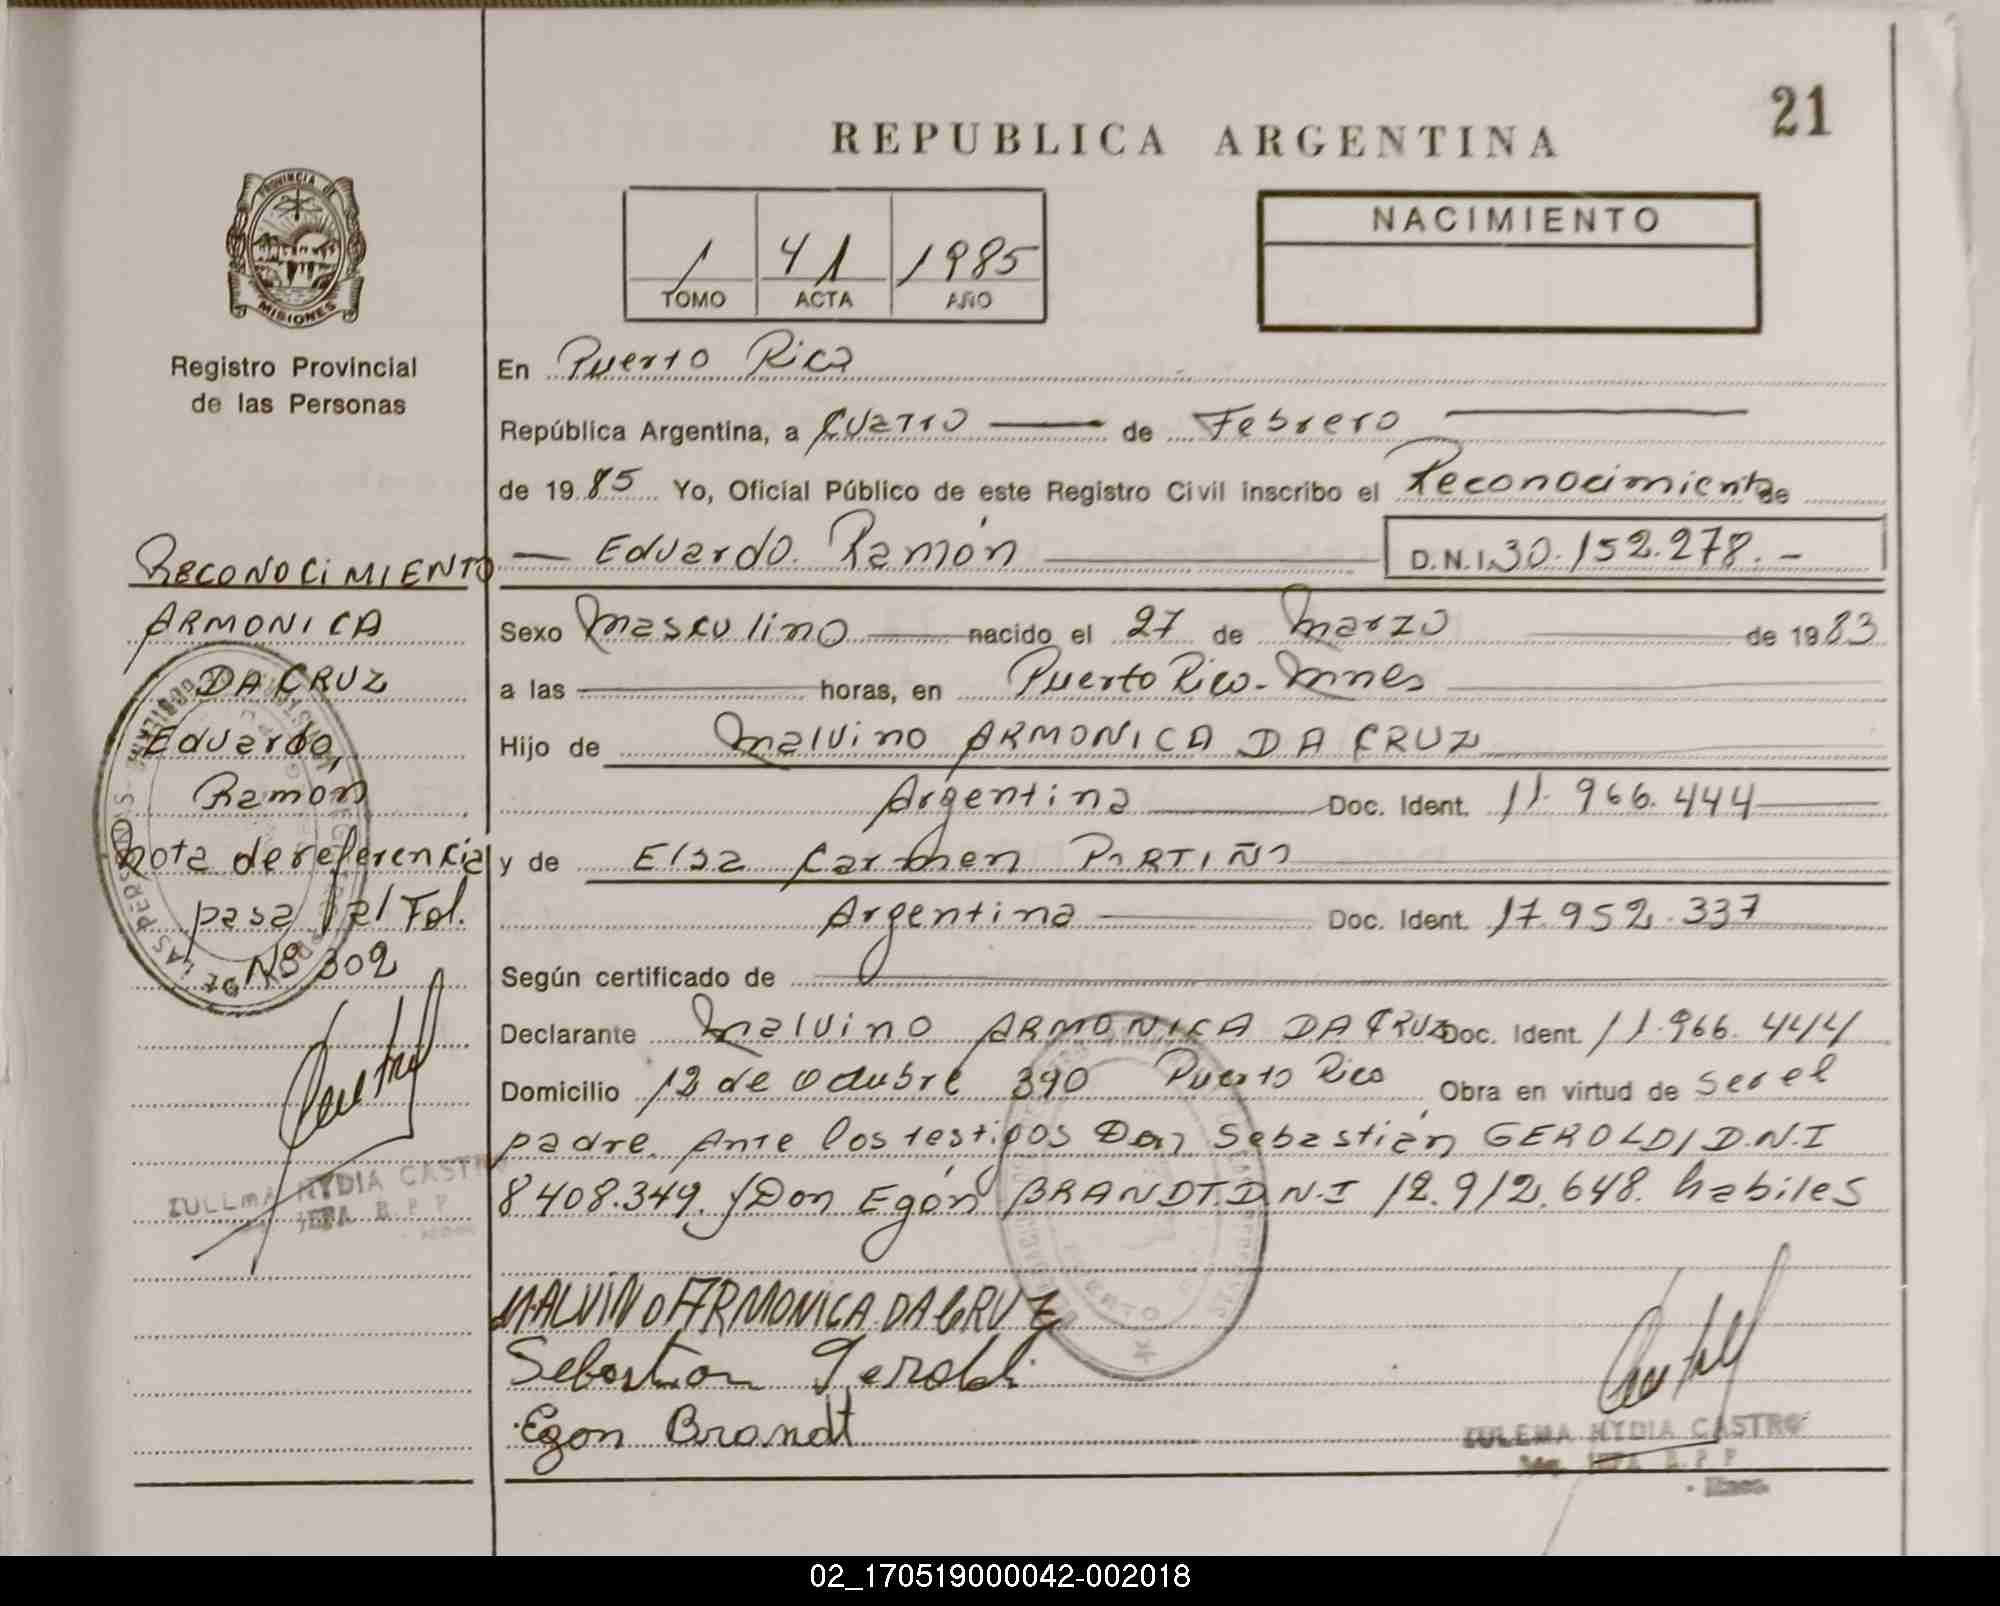 21
REPUBLICA ARGENTINA
PROVINCIA DE
MISIONES
Registro Provincial
de las Personas
1 41 1985
TOMO ACTA AÑO
NACIMIENTO
En Puerto Rico
República Argentina, a Cuatro de Febrero
de 1985 Yo, Oficial Público de este Registro Civil inscribo el Reconocimiento de
Eduardo Ramón D.N.I. 30.152.278.-
Sexo Masculino nacido el 27 de Marzo de 1983
a las horas, en Puerto Rico - Mnes
Hijo de Malvino ARMONICA DA CRUZ
Argentina Doc. Ident. 11.966.444
y de Elsa Carmen PORTIÑO
Argentina Doc. Ident. 17.952.337
Según certificado de
Declarante Malvino ARMONICA DA CRUZ Doc. Ident. 11.966.444
Domicilio 12 de Octubre 390 Puerto Rico Obra en virtud de ser el
padre. Ante los testigos Don Sebastián GEROLDI D.N.I
8408.349. y Don Egón BRANDT. D.N.I 12.912.648. habiles
MALVINO ARMONICA DA CRUZ
Sebastian Geroldi
Egon Brandt
ZULEMA NYDIA CASTRO
RECONOCIMIENTO
ARMONICA
DA CRUZ
Eduardo,
Ramon
Nota de referencia
pasa al Fol.
Nº 302
ZULEMA NYDIA CASTRO
02_170519000042-002018